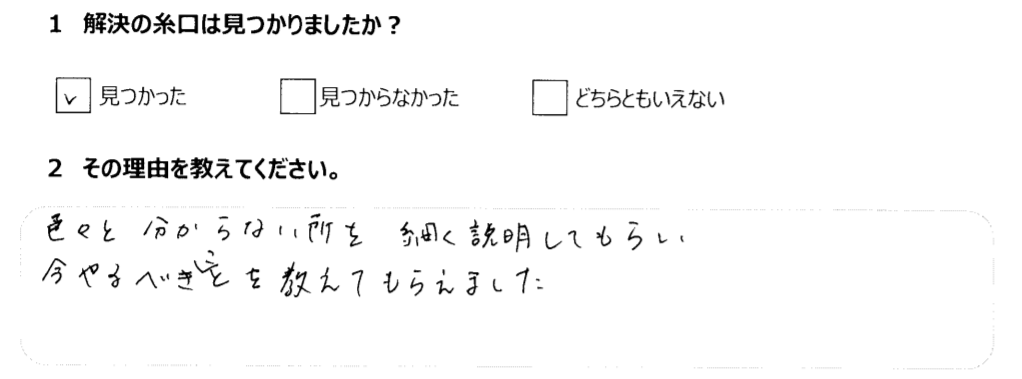 1 解決の糸口は見つかりましたか？
☑見つかった □見つからなかった □どちらともいえない
2 その理由を教えてください。
色々と分からない所を細く説明してもらい
今やるべきことを教えてもらえました